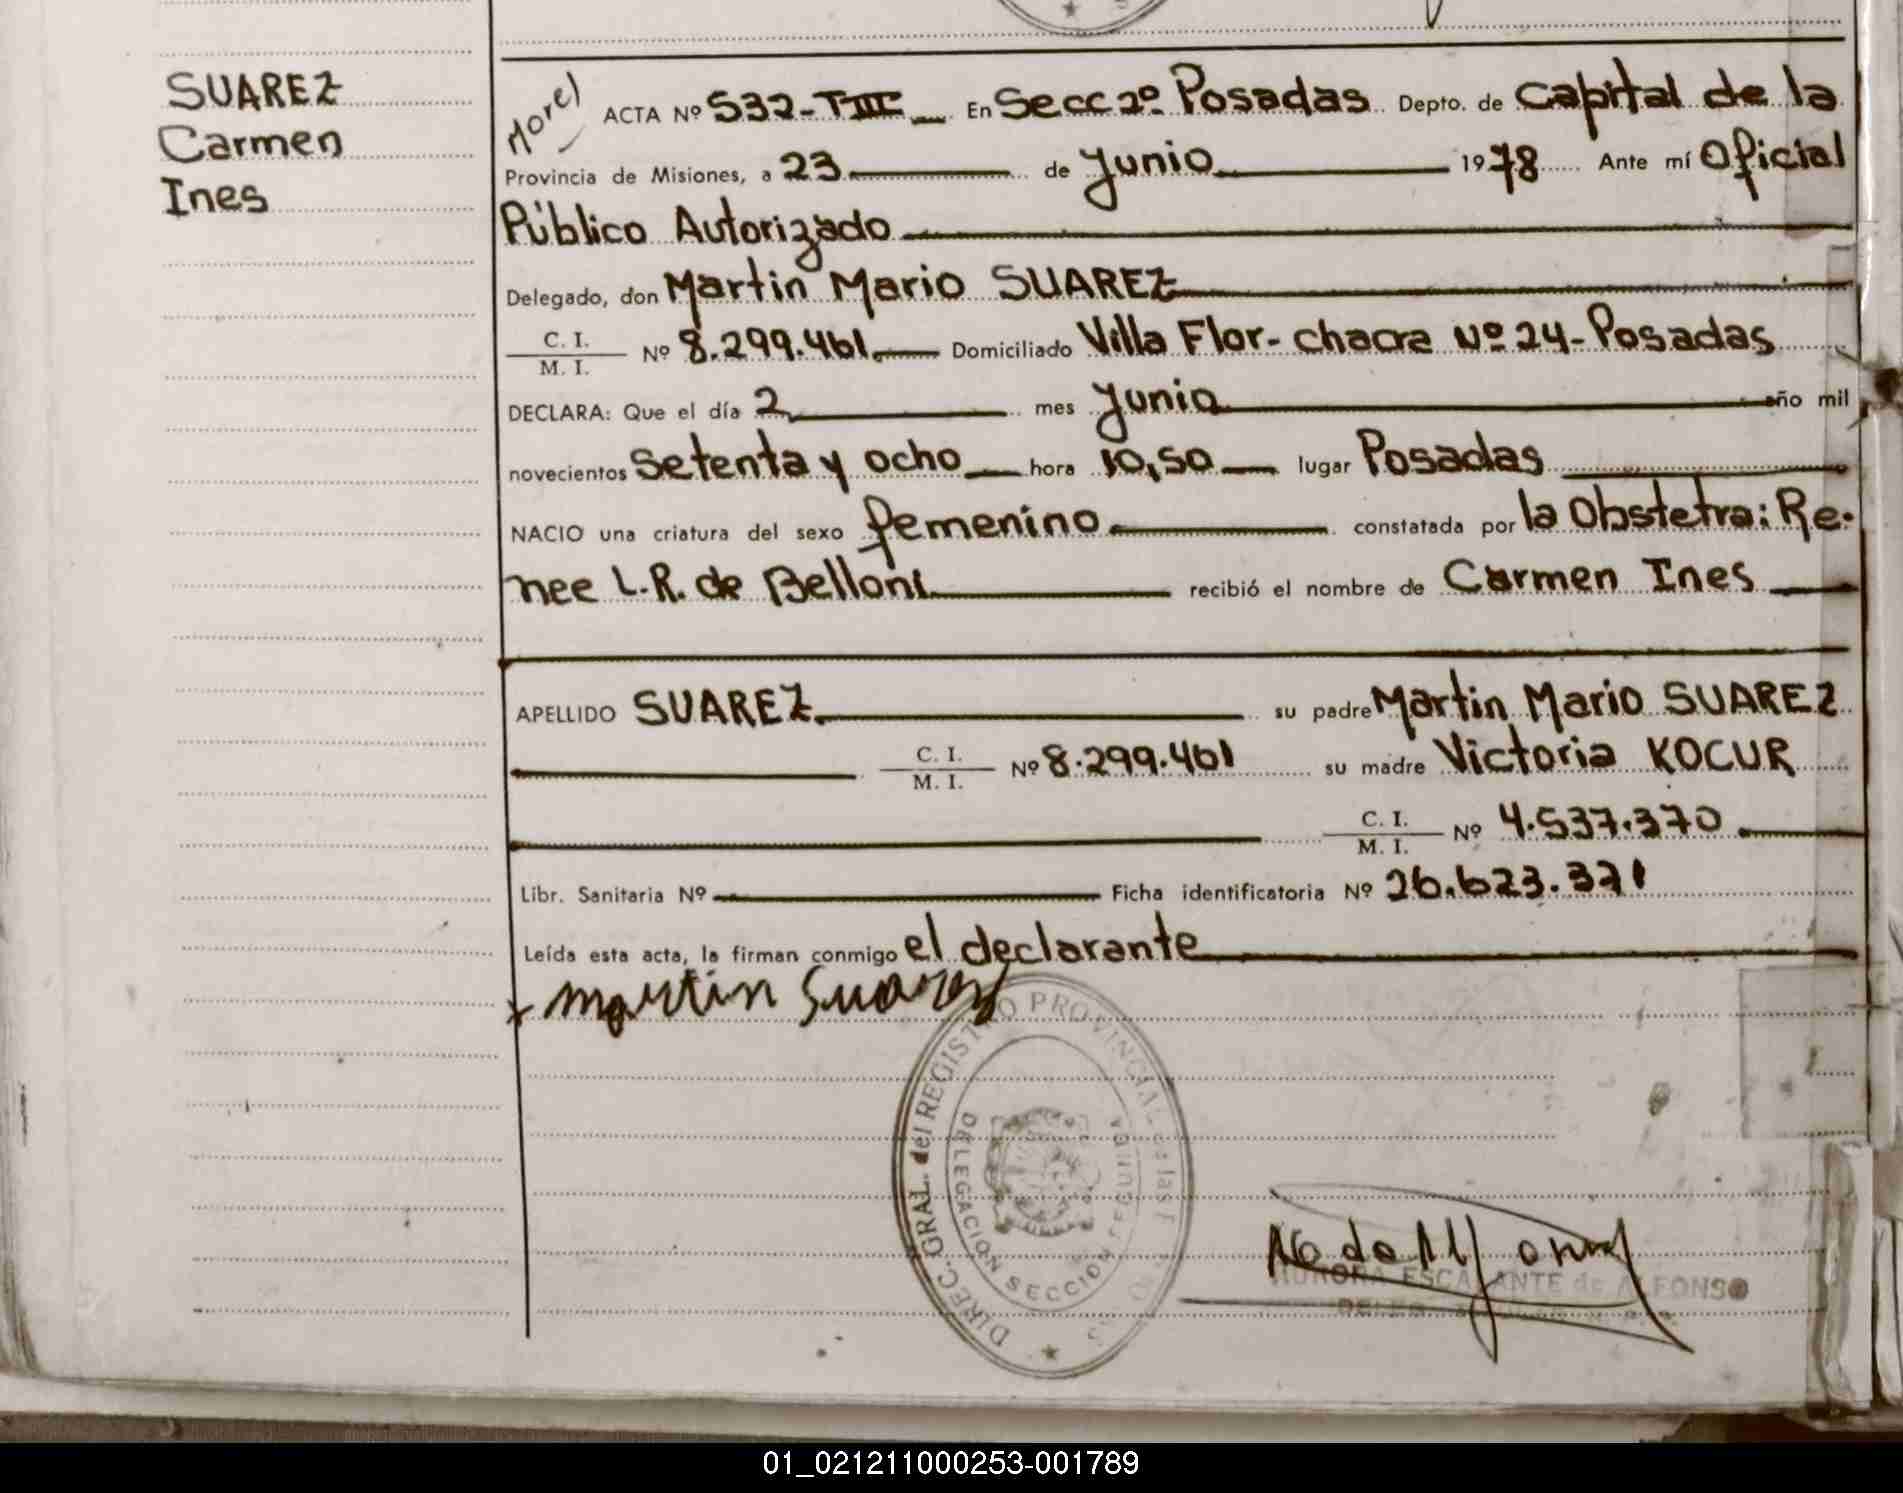 SUAREZ
Carmen
Ines
Morel
ACTA Nº 532-TIII En Secc 2º Posadas Depto. de Capital de la
Provincia de Misiones, a 23 de Junio 1978 Ante mí Oficial
Público Autorizado
Delegado, don Martin Mario SUAREZ
C. I.
M. I. Nº 8.299.461 Domiciliado Villa Flor- chacra Nº 24-Posadas
DECLARA: Que el día 2 mes Junio año mil
novecientos Setenta y ocho hora 10,50 lugar Posadas
NACIO una criatura del sexo femenino constatada por la Obstetra: Re-
nee L.R. de Belloni recibió el nombre de Carmen Ines
APELLIDO SUAREZ su padre Martin Mario SUAREZ
C. I.
M. I. Nº 8.299.461 su madre Victoria KOCUR
C. I.
M. I. Nº 4.537.370
Libr. Sanitaria Nº Ficha identificatoria Nº 26.623.371
Leída esta acta, la firman conmigo el declarante
x Martin Suarez
DIREC. GRAL. del REGISTRO PROVINCIAL de las
DELEGACION SECCION
AURORA ESCALANTE de ALFONSO
01_021211000253-001789